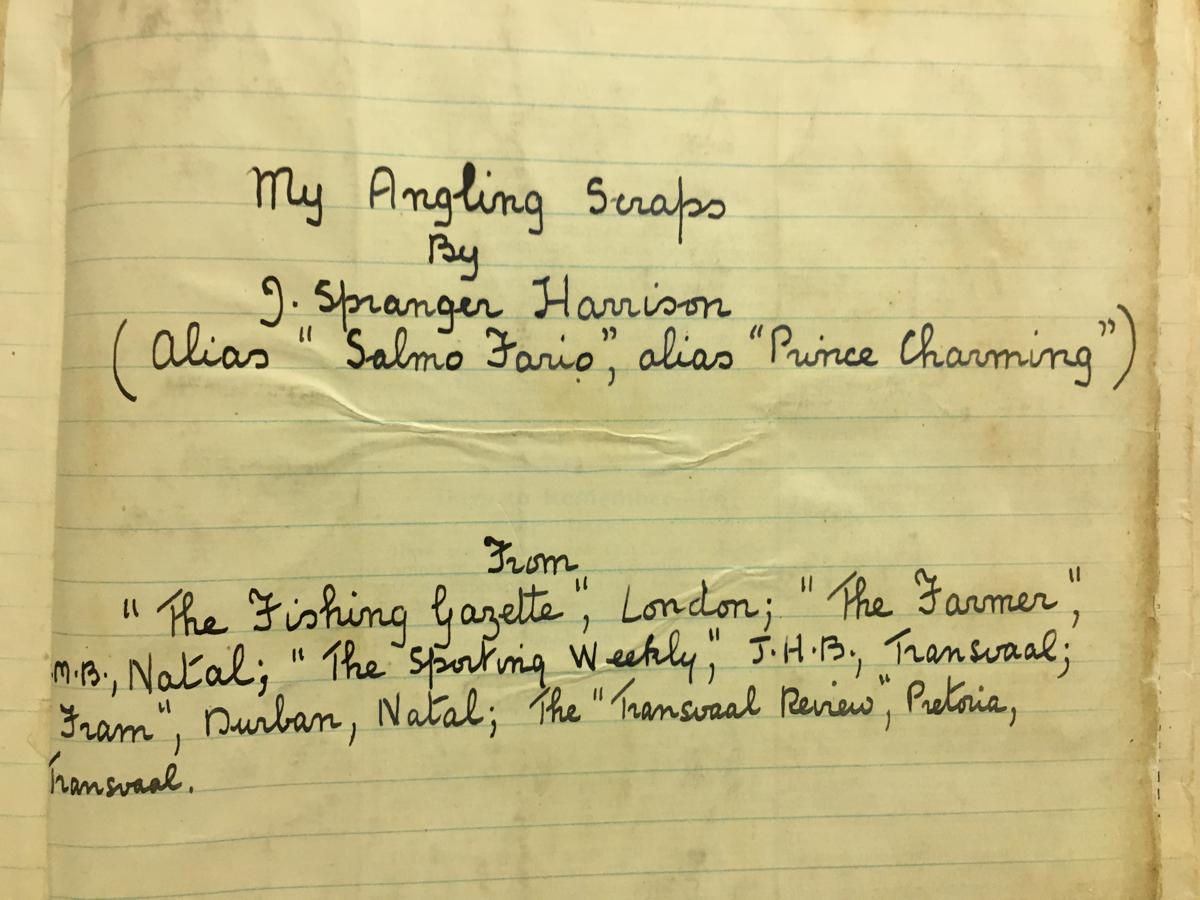 My Angling Scraps
By
J. Spranger Harrison
(Alias "Salmo Fario", alias "Prince Charming")
From
"The Fishing Gazette", London; "The Farmer",
M.B., Natal; "The Sporting Weekly", J.H.B., Transvaal;
Fram", Durban, Natal; The "Transvaal Review", Pretoria,
Transvaal.